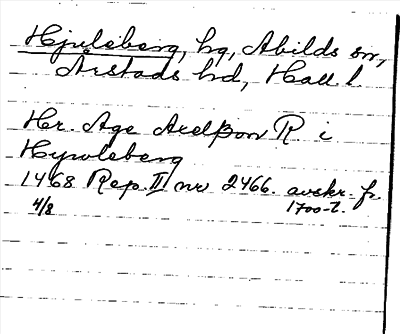 Hjuleberg, hg, Abilds sn,
Årstads hd, Hall l.
Hr. Åge Axelsson R i
Hywleberg
1468 Rep. II nr 2466. avskr. fr.
4/8 1700-t.